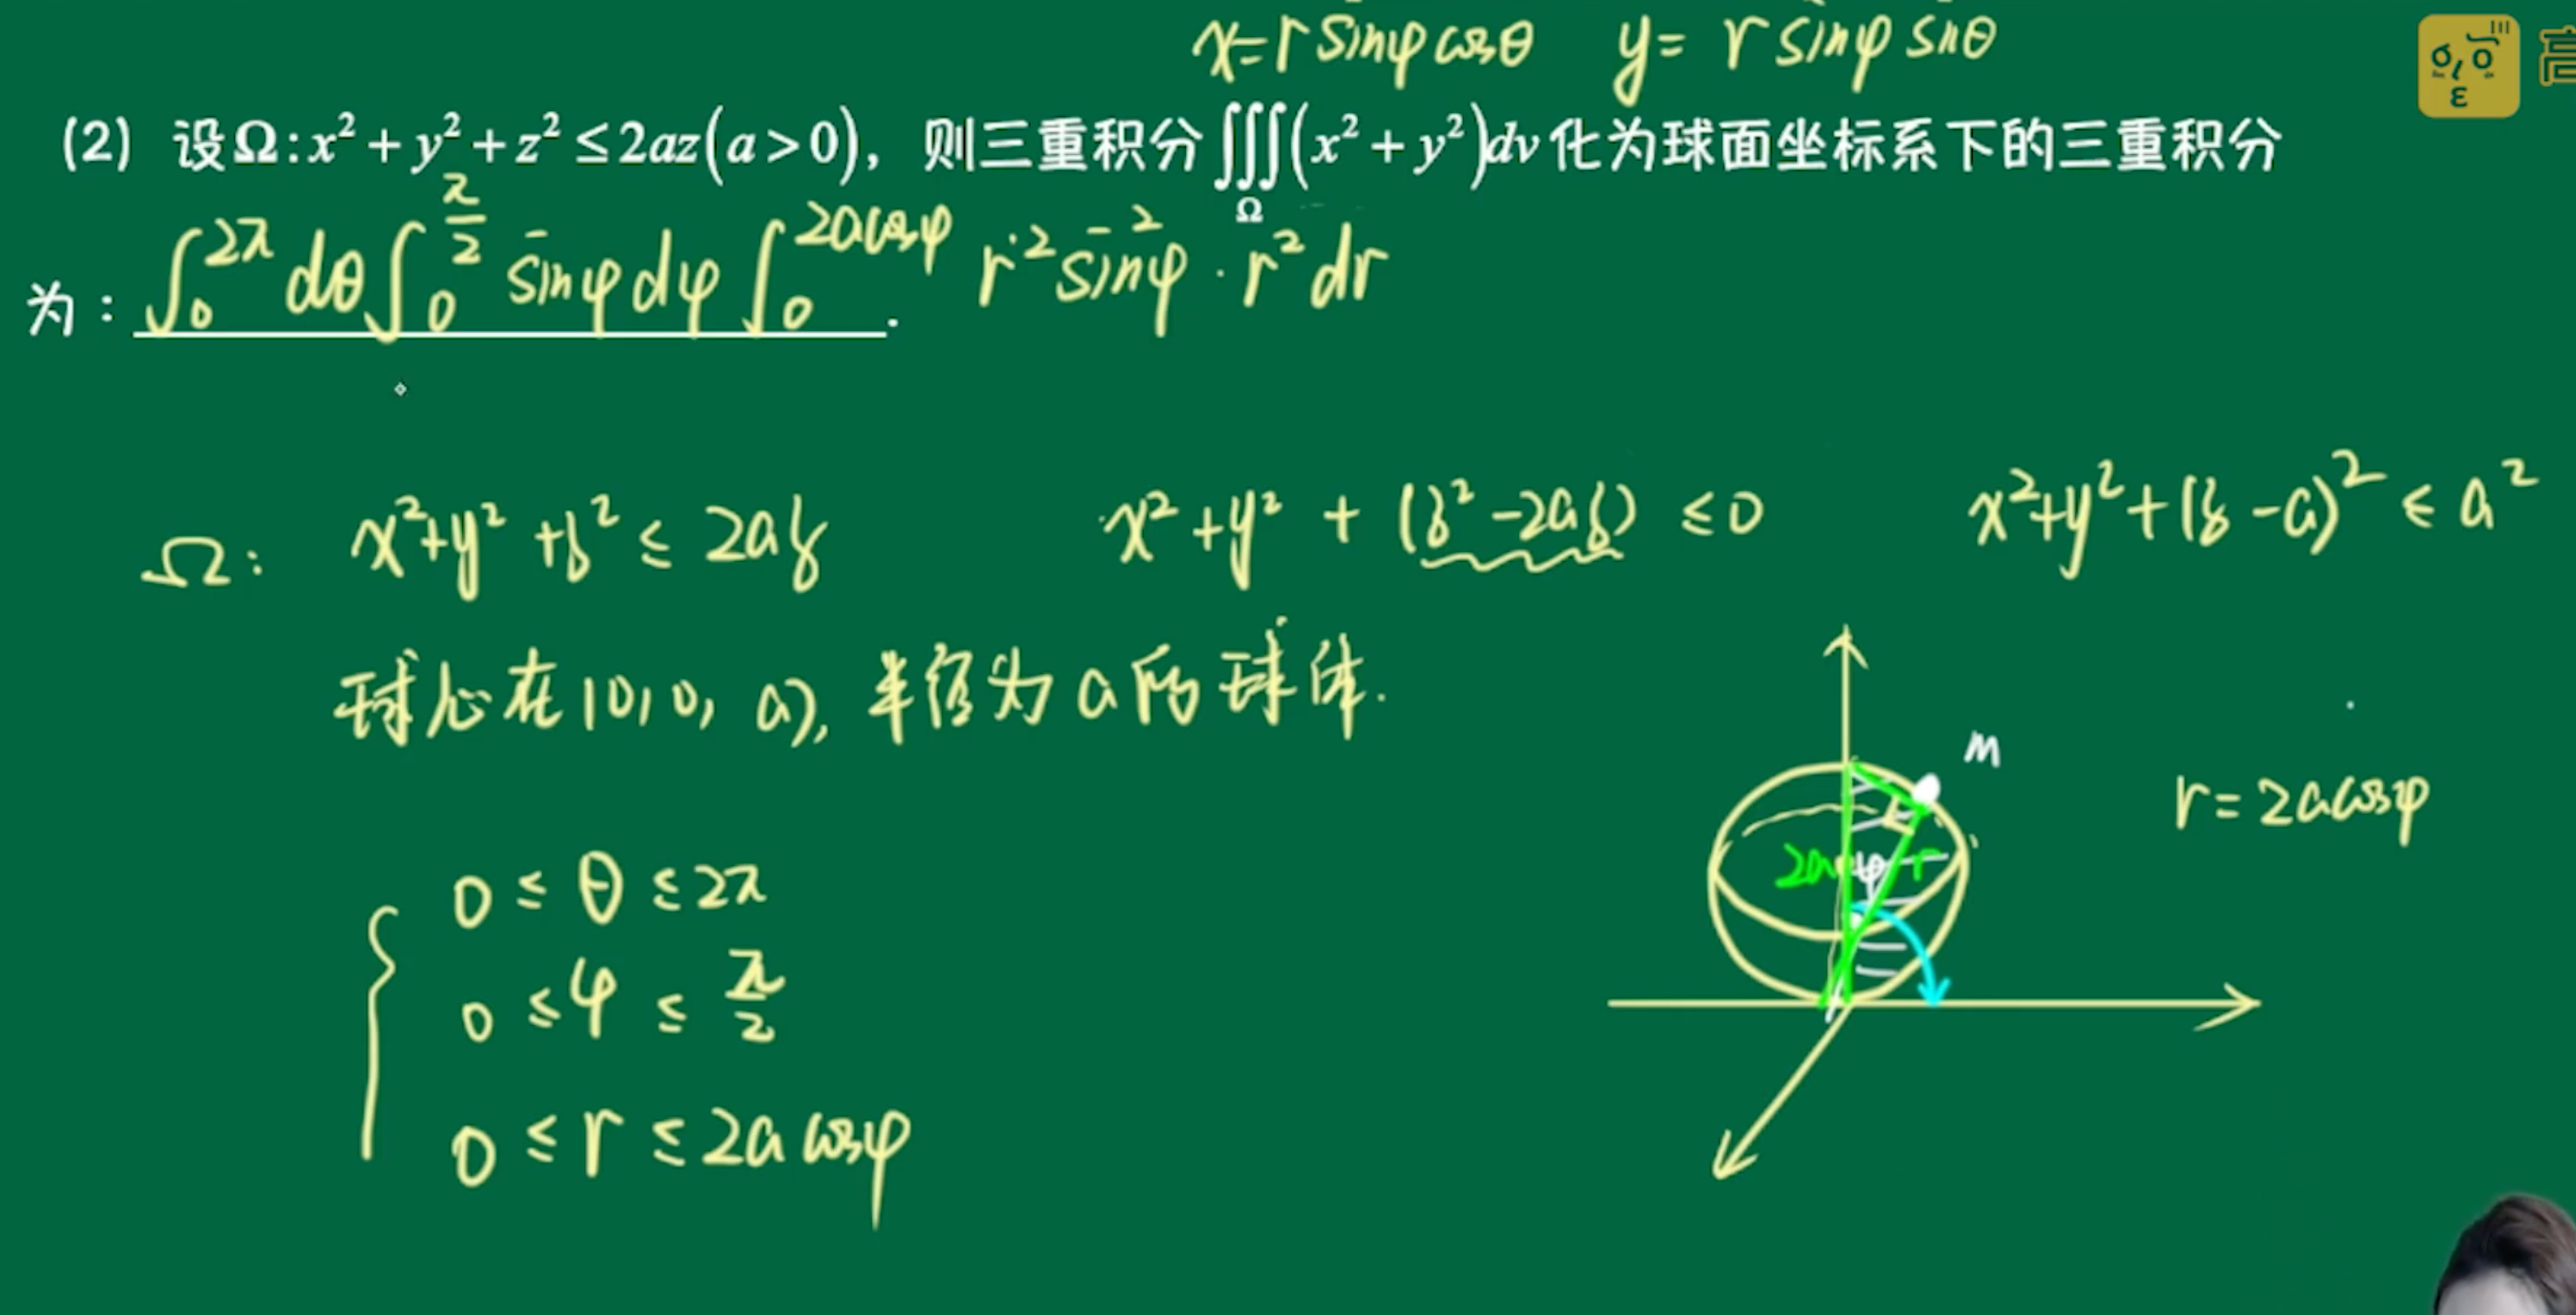 x=rsinφcosθ y=rsinφsinθ
(2) 设Ω:x²+y²+z²≤2az(a>0)，则三重积分∭(x²+y²)dv化为球面坐标系下的三重积分
Ω
为：∫₀^{2π}dθ∫₀^{π/2}sinφdφ∫₀^{2acosφ} r²sin²φ·r²dr
Ω: x²+y²+z²≤2az x²+y²+(z²-2az)≤0 x²+y²+(z-a)²≤a²
球心在(0,0,a),半径为a的球体.
M
r=2acosφ
2a φ r
0≤θ≤2π
0≤φ≤π/2
0≤r≤2acosφ
高